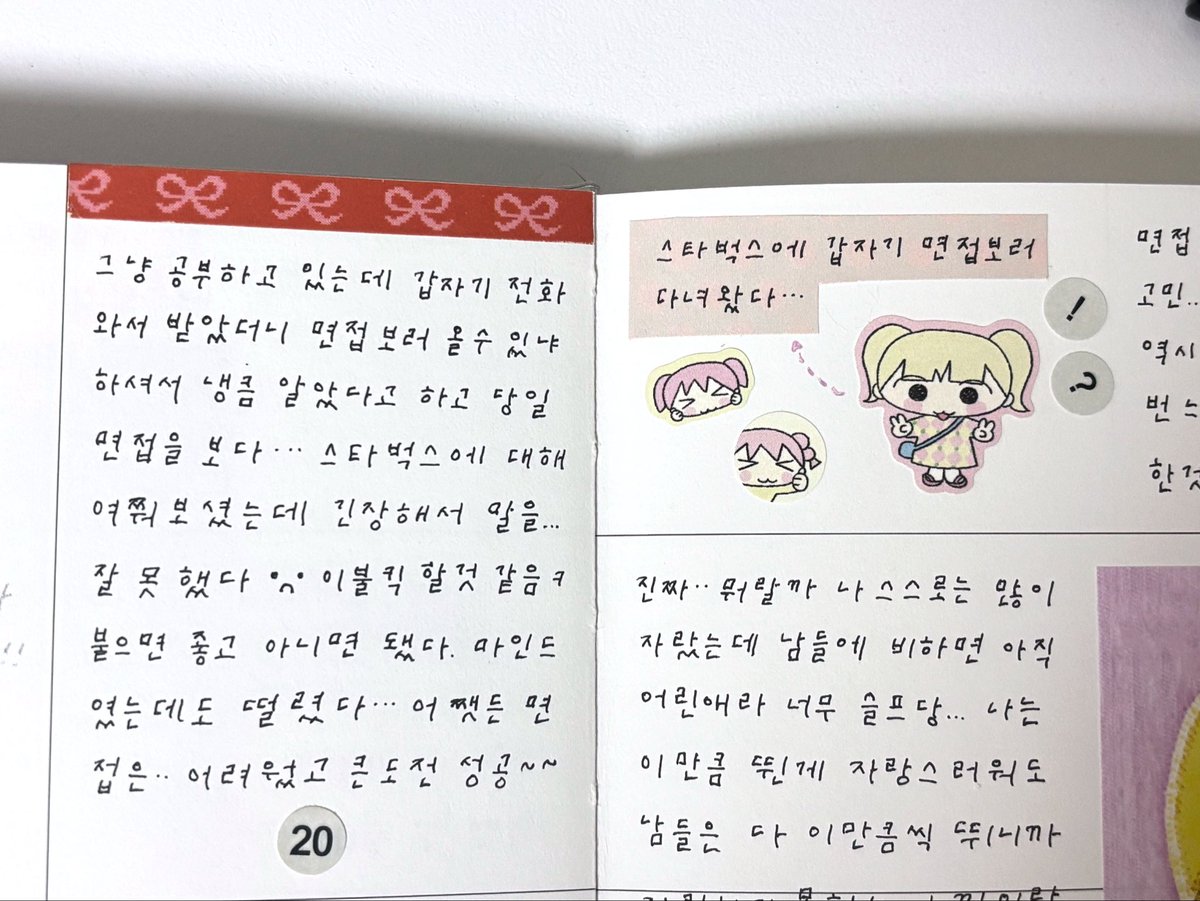 그냥 공부하고 있는데 갑자기 전화
와서 받았더니 면접보러 올수 있냐
하셔서 냉큼 알았다고 하고 당일
면접을 보다… 스타벅스에 대해
여쭤보셨는데 긴장해서 말을…
잘 못 했다 이불킥 할것 같음ㅋ
붙으면 좋고 아니면 됐다. 마인드
였는데도 떨렸다… 어쨋든 면
접은.. 어려웠고 큰 도전 성공~~
20
스타벅스에 갑자기 면접보러
다녀왔다…
!
?
면접
고민..
역시
번 느
한것
진짜.. 뭐랄까 나 스스로는 많이
자랐는데 남들에 비하면 아직
어린애라 너무 슬프당… 나는
이만큼 뛴게 자랑스러워도
남들은 다 이만큼씩 뛰니까